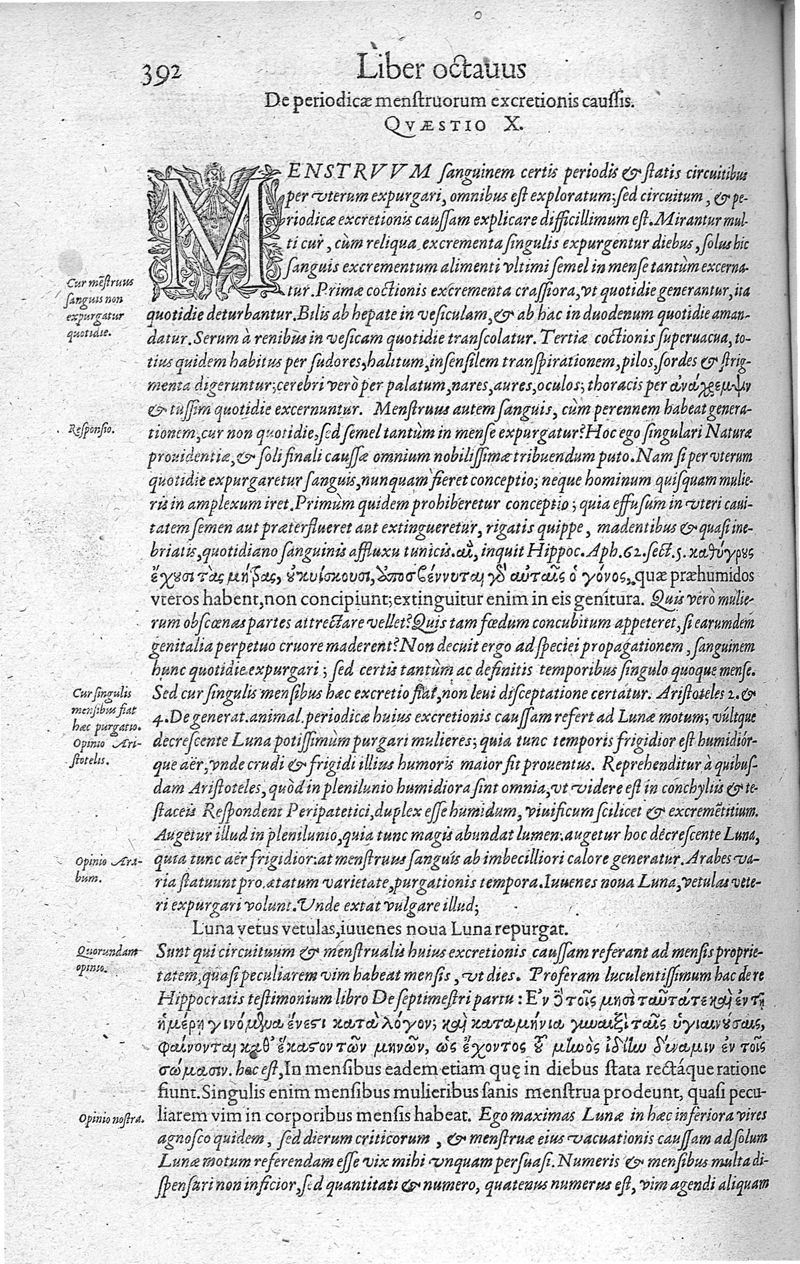 392
Liber octauus
De periodicæ menstruorum excretionis caussis.
QVÆSTIO X.
MENSTRVVM sanguinem certis periodis & statis circuitibus
per vterum expurgari, omnibus est exploratum; sed circuitum, & pe-
riodicæ excretionis caussam explicare difficillimum est. Mirantur mul-
ti cur, cùm reliqua excrementa singulis expurgentur diebus, solus hic
sanguis excrementum alimenti vltimi semel in mense tantùm excerna-
tur. Primæ coctionis excrementa crassiora, vt quotidie generantur, ita
quotidie deturbantur. Bilis ab hepate in vesiculam, & ab hac in duodenum quotidie aman-
datur. Serum à renibus in vesicam quotidie transcolatur. Tertiæ coctionis superuacua, to-
tius quidem habitus per sudores, halitum, insensilem transpirationem, pilos, sordes & strig-
menta digeruntur; cerebri verò per palatum, nares, aures, oculos; thoracis per ἀνάχρεμψιν
& tussim quotidie excernuntur. Menstruus autem sanguis, cùm perennem habeat genera-
tionem, cur non quotidie, sed semel tantùm in mense expurgatur? Hoc ego singulari Naturæ
prouidentiæ, & soli finali caussæ omnium nobilissimæ tribuendum puto. Nam si per vterum
quotidie expurgaretur sanguis, nunquam fieret conceptio; neque hominum quisquam mulie-
ris in amplexum iret. Primùm quidem prohiberetur conceptio; quia effusum in vteri caui-
tatem semen aut præterflueret aut extingueretur, rigatis quippe, madentibus & quasi ine-
briatis, quotidiano sanguinis affluxu tunicis. αἳ, inquit Hippoc. Aph. 62. sect. 5. καθύγρους
ἔχουσι τὰς μήτρας, οὐ κυΐσκουσι, ἀποσβέννυται γὰρ αὐταῖς ὁ γόνος, quæ præhumidos
vteros habent, non concipiunt; extinguitur enim in eis genitura. Quis verò mulie-
rum obscœnas partes attrectare vellet? Quis tam fœdum concubitum appeteret, si earumdem
genitalia perpetuo cruore maderent? Non decuit ergo ad speciei propagationem, sanguinem
hunc quotidie expurgari; sed certis tantùm ac definitis temporibus singulo quoque mense.
Sed cur singulis mensibus hæc excretio fiat, non leui disceptatione certatur. Aristoteles 2. &
4. De generat. animal. periodicæ huius excretionis caussam refert ad Lunæ motum; vultque
decrescente Luna potissimùm purgari mulieres; quia tunc temporis frigidior est humidiór-
que aër, vnde crudi & frigidi illius humoris maior fit prouentus. Reprehenditur à quibus-
dam Aristoteles, quòd in plenilunio humidiora sint omnia, vt videre est in conchyliis & te-
staceis Respondent Peripatetici, duplex esse humidum, viuificum scilicet & excremẽtitium.
Augetur illud in plenilunio, quia tunc magis abundat lumen: augetur hoc decrescente Luna,
quia tunc aër frigidior: at menstruus sanguis ab imbecilliori calore generatur. Arabes va-
ria statuunt pro ætatum varietate, purgationis tempora. Iuuenes noua Luna, vetulas vete-
ri expurgari volunt. Vnde extat vulgare illud;
Luna vetus vetulas, iuuenes noua Luna repurgat.
Sunt qui circuituum & menstrualis huius excretionis caussam referant ad mensis proprie-
tatem, quasi peculiarem vim habeat mensis, vt dies. Proferam luculentissimum hac de re
Hippocratis testimonium libro De septimestri partu: Ἐν δὲ τοῖς μησὶ ταῦτά τε καὶ ἐν τῇ
ἡμέρῃ γινόμενα ἔνεστι κατὰ λόγον; καὶ καταμήνια γυναιξὶ ταῖς ὑγιαινούσαις,
φαίνονται καθ' ἕκαστον τῶν μηνῶν, ὡς ἔχοντος τοῦ μηνὸς ἰδίην δύναμιν ἐν τοῖς
σώμασιν. hoc est, In mensibus eadem etiam quę in diebus stata rectáque ratione
fiunt. Singulis enim mensibus mulieribus sanis menstrua prodeunt, quasi pecu-
liarem vim in corporibus mensis habeat. Ego maximas Lunæ in hæc inferiora vires
agnosco quidem, sed dierum criticorum, & menstruæ eius vacuationis caussam ad solum
Lunæ motum referendam esse vix mihi vnquam persuasi. Numeris & mensibus multa di-
spensari non inficior, sed quantitati & numero, quatenus numerus est, vim agendi aliquam
Cur mẽstruus
sanguis non
expurgatur
quotidie.
Responsio.
Cur singulis
mensibus fiat
hæc purgatio.
Opinio Ari-
stotelis.
Opinio Ara-
bum.
Quorundam
opinio.
Opinio nostra.